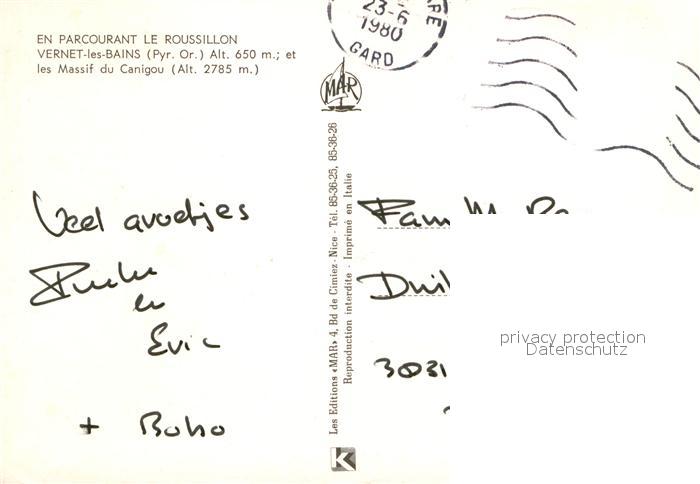 EN PARCOURANT LE ROUSSILLON
VERNET-les-BAINS (Pyr. Or.) Alt. 650 m.; et
les Massif du Canigou (Alt. 2785 m.)
23-6
1980
GARD
MAR
Les Editions «MAR» 4, Bd de Cimiez - Nice - Tél. 85-36-25, 85-36-26
Reproduction interdite - Imprimé en Italie
Veel
en
Eric
+ Boho
Fam
3031
privacy protection
Datenschutz
K